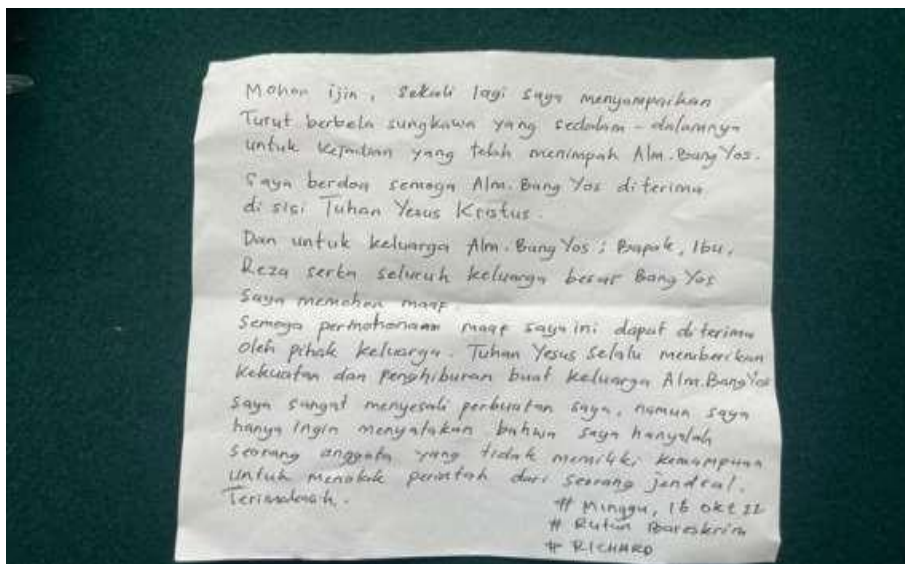 Mohon ijin, sekali lagi saya menyampaikan
Turut berbela sungkawa yang sedalam-dalamnya
untuk kejadian yang telah menimpah Alm. Bang Yos.
Saya berdoa semoga Alm. Bang Yos diterima
di sisi Tuhan Yesus Kristus.
Dan untuk keluarga Alm. Bang Yos : Bapak, Ibu,
Reza serta seluruh keluarga besar Bang Yos
Saya memohon maaf.
Semoga permohonan maaf saya ini dapat diterima
oleh pihak keluarga. Tuhan Yesus selalu memberikan
kekuatan dan penghiburan buat keluarga Alm. Bang Yos
Saya sangat menyesali perbuatan saya, namun saya
hanya ingin menyatakan bahwa saya hanyalah
seorang anggota yang tidak memiliki kemampuan
untuk menolak perintah dari seorang jendral.
Terimakasih.
# Minggu, 16 okt 22
# Rutan Bareskrim
# RICHARD